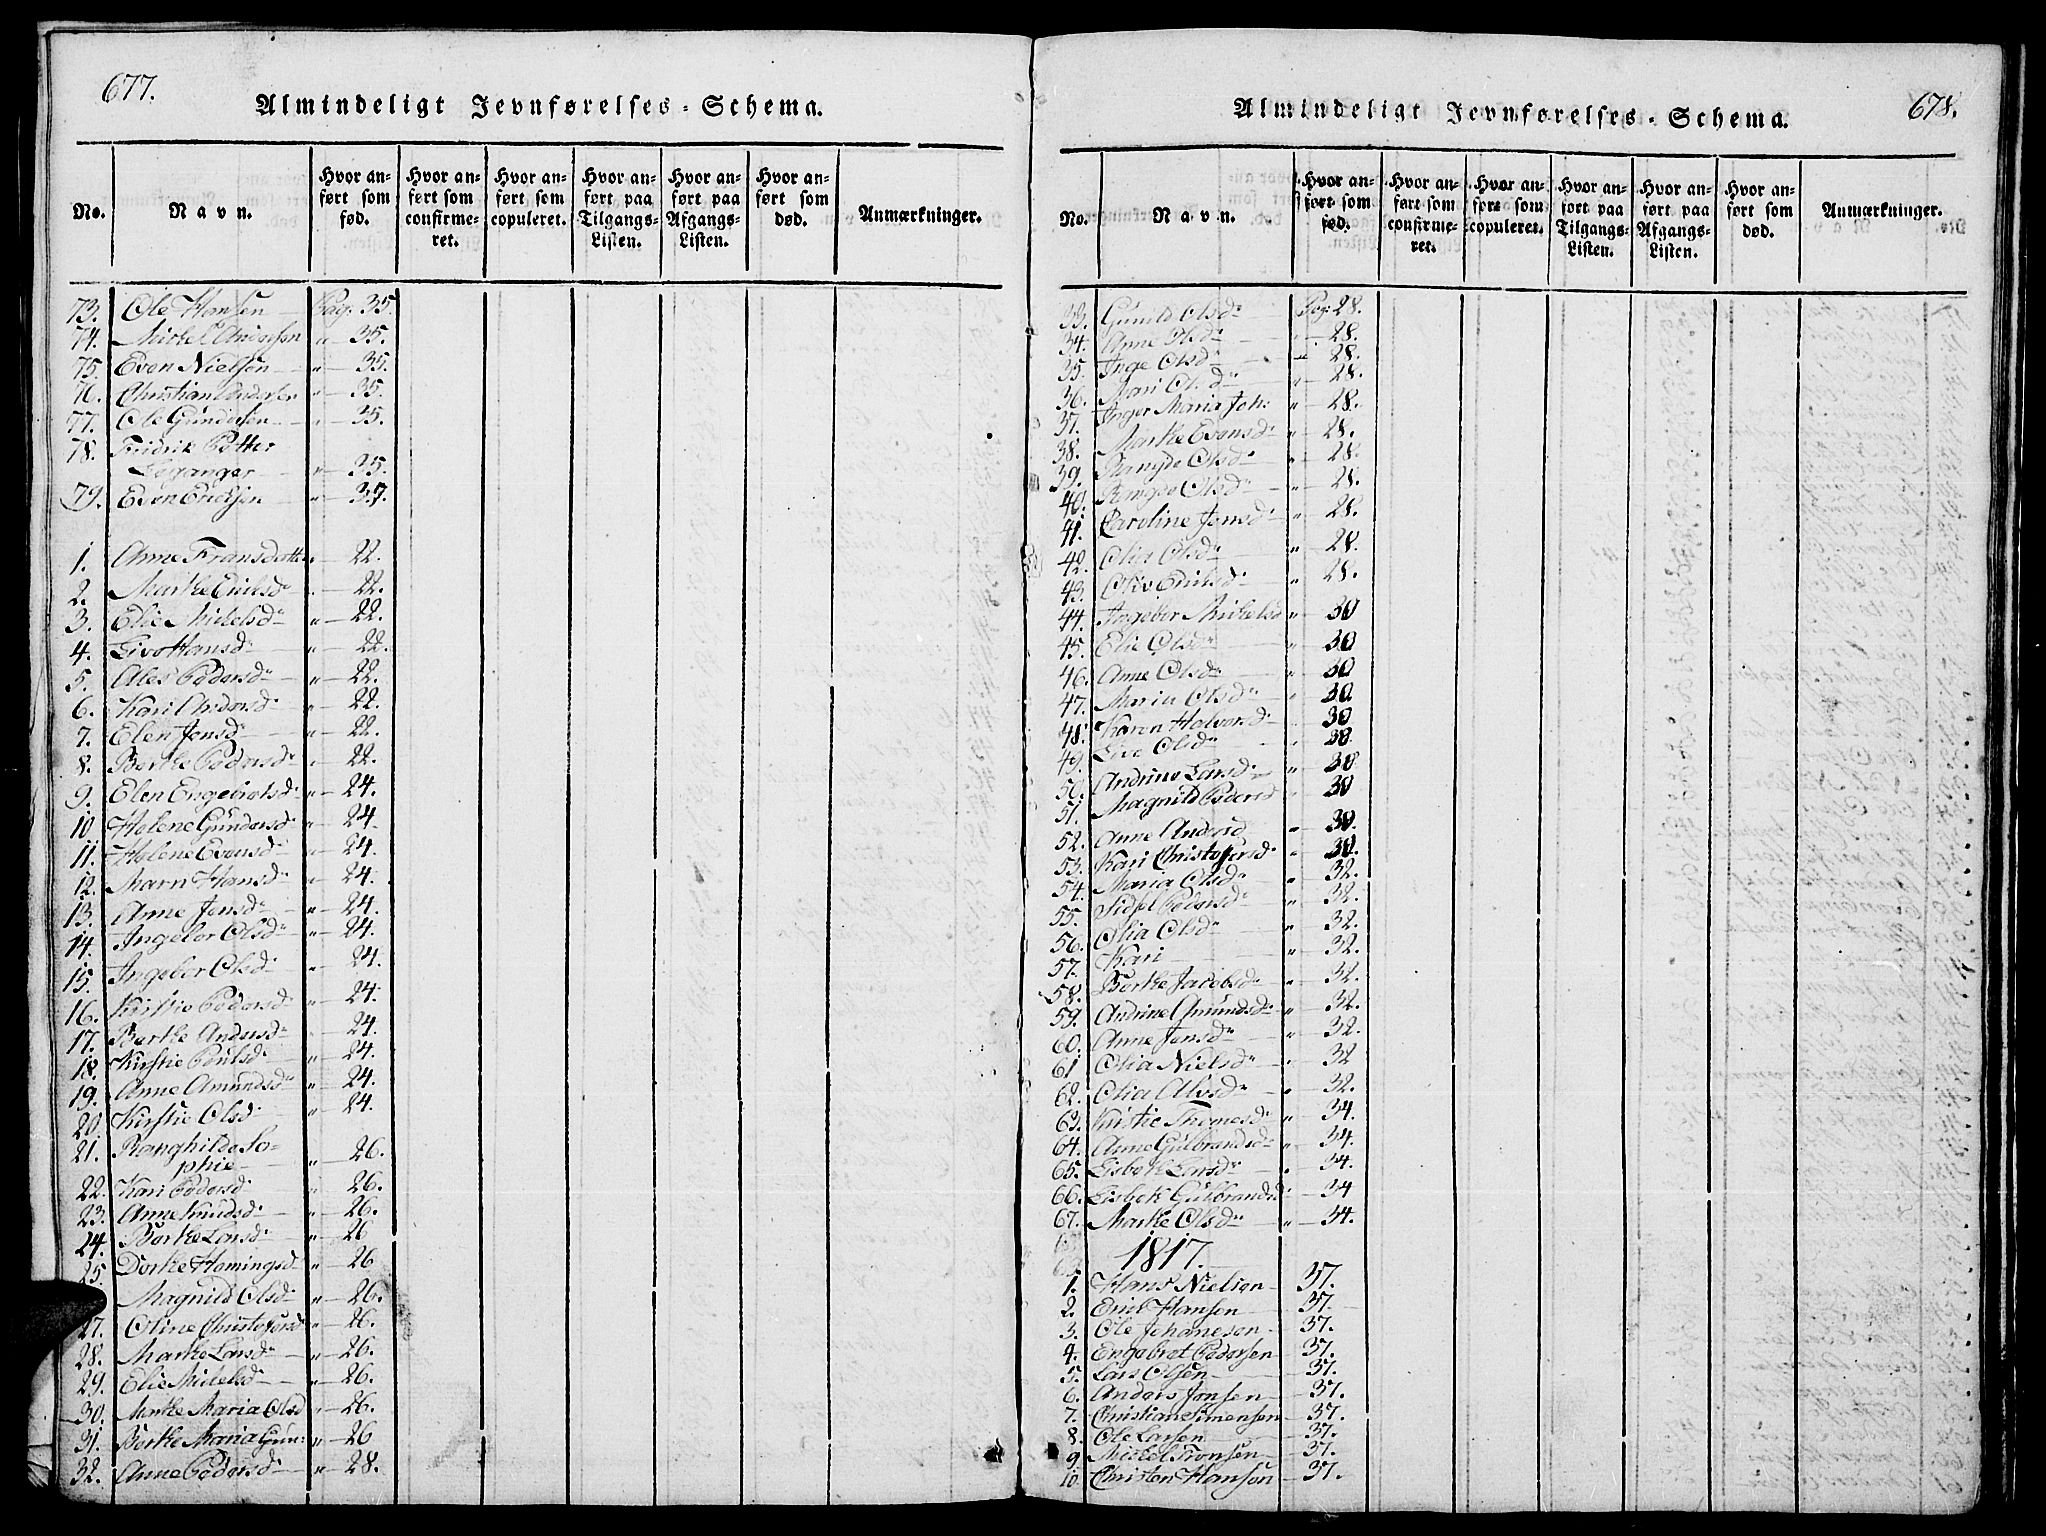 677.
Almindeligt Jevnførelses-Schema.
No.
Navn.
Hvor anført som fød.
Hvor anført som confirmeret.
Hvor anført som copuleret.
Hvor anført paa Tilgangs-Listen.
Hvor anført paa Afgangs-Listen.
Hvor anført som død.
Anmærkninger.
73. Ole Hansen Pag. 35.
74. Mickel Andersen " 35.
75. Even Nielsen " 35.
76. Christian Andersen " 35.
77. Ole Gundersen " 35.
78. Fridrik Petter
" 35.
79. Even Ericksen " 37.
1. Anne Fransdatter " 22.
2. Marthe Emilsd " 22.
3. Elie Mickelsd " 22.
4. Live Hansd " 22.
5. Ales Pedersd " 22.
6. Kari Andersd " 22.
7. Elen Jensd " 22.
8. Berthe Pedersd " 22.
9. Elen Engebretsd " 24.
10 Helene Gundersd " 24.
11. Helene Evensd " 24.
12. Maren Hansd " 24.
13. Anne Jensd " 24.
14. Ingebor Olsd " 24.
15. Ingebor Olsd " 24.
16. Kirstie Pedersd " 24.
17. Berthe Andersd " 24.
18. Kirstie Poulsd " 24.
19. Anne Amundsd " 24.
20 Kirstie Olsd " 24.
21. Ranghilde So-
phie " 26.
22. Kari Pedersd " 26.
23. Anne Knudsd " 26.
24. Berthe Larsd " 26
25. Dorthe Hemingsd " 26
Magnild Olsd " 26.
27. Oline Christofersd " 26.
28. Marthe Larsd " 26.
29. Elie Mickelsd " 26.
30. Marthe Maria Olsd " 26.
31. Berthe Maria Gun: " 26
32. Anne Pedersd " 28.
678.
Almindeligt Jevnførelses-Schema.
No.
Navn.
Hvor anført som fød.
Hvor anført som confirmeret.
Hvor anført som copuleret.
Hvor anført paa Tilgangs-Listen.
Hvor anført paa Afgangs-Listen.
Hvor anført som død.
Anmærkninger.
33. Gunild Olsd Pag. 28.
34. Anne Olsd " 28.
35. Inge Olsd " 28.
36. Mari Olsd " 28.
37. Inger Maria Joh: " 28.
38. Marthe Evensd " 28.
39. Olsd " 28.
40. Olsd " 28.
41. Caroline Jensd " 28.
42. Olia Olsd " 28.
43. " 28.
44. Ingebor Mickelsd " 30
45. Elie Olsd " 30
46. Anne Olsd " 30
47. Maria Olsd " 30
48. Karen Halvorsd " 30
49. Live Olsd " 30
50. Andrine Larsd " 30
51. Magnild Pedersd " 30
52. Anne Andersd " 30.
53. Kari Christofersd " 30.
54. Maria Olsd " 32.
55. Sidsel Pedersd " 32.
56. Olia Olsd " 32.
57. Kari " 32.
58. Berthe Jacobsd " 32.
59. Andrine Amundsd " 32.
60. Anne Jensd " 32.
61 Olia Nielsd " 32
62. Olia Alvsd " 32.
63. Kirstie Thomesd " 34.
64. Anne Gulbrandsd " 34.
65. Lisbeth Larsd " 34.
66. Lisbeth Gulbrandsd 34
67. Marthe Olsd " 34.
1817.
1. Hans Nielsen 37.
2. Erick Hansen 37.
3. Ole Johannesen 37.
4. Engebret Pedersen 37.
5. Lars Olsen 37.
6. Anders Jensen 37.
7. Christian Simensen 37.
8. Ole Larsen 37.
9. Mickel Tronsen 37.
10. Christen Hansen 37.